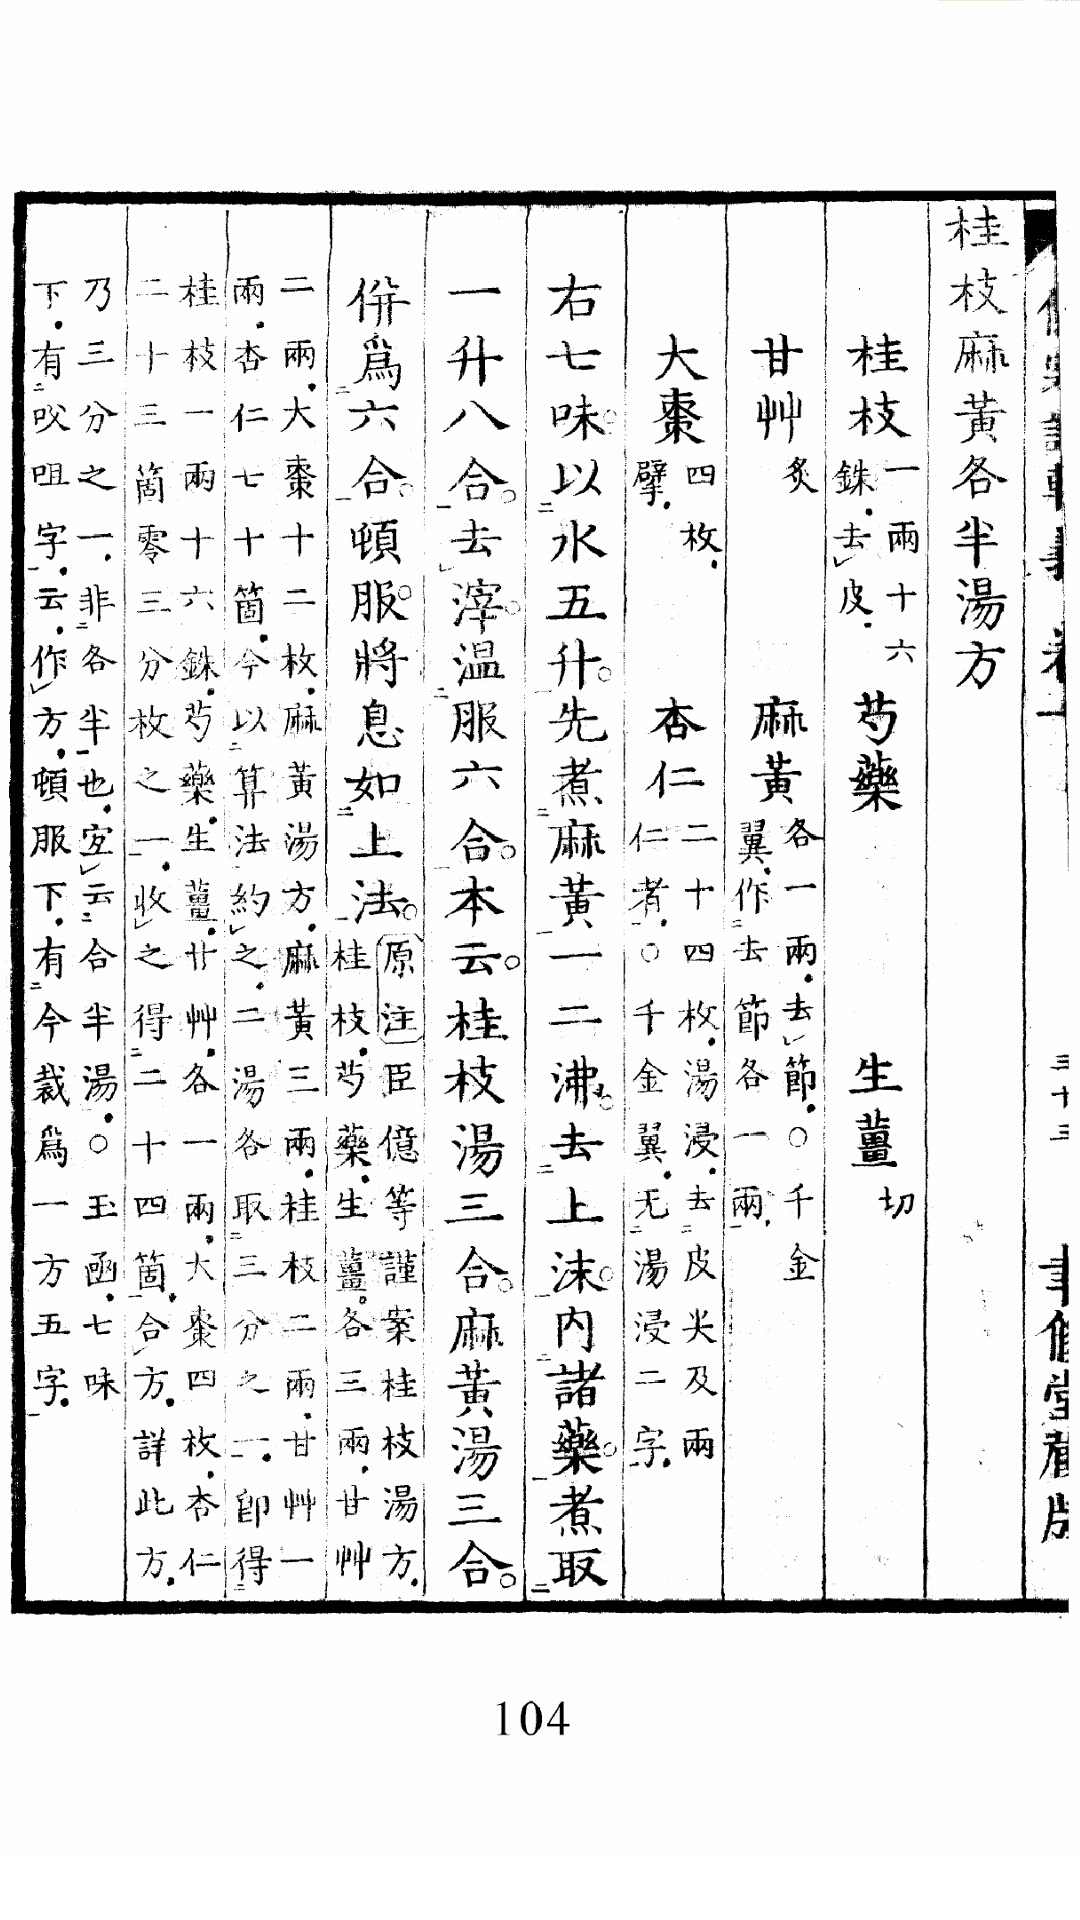 桂枝麻黃各半湯方
桂枝一兩十六銖去皮 芍藥 生薑切
甘艸炙 麻黃各一兩去節○千金翼作去節各一兩
大棗四枚擘 杏仁二十四枚湯浸去皮尖及兩仁者○千金翼无湯浸二字
右七味以水五升先煮麻黃一二沸去上沫內諸藥煮取
一升八合去滓温服六合本云桂枝湯三合麻黃湯三合
併爲六合頓服將息如上法原注臣億等謹案桂枝湯方
桂枝芍藥生薑各三兩甘艸
二兩大棗十二枚麻黃湯方麻黃三兩桂枝二兩甘艸一
兩杏仁七十箇今以算法約之二湯各取三分之一卽得
桂枝一兩十六銖芍藥生薑廿艸各一兩大棗四枚杏仁
二十三箇零三分枚之一收之得二十四箇合方詳此方
乃三分之一非各半也宐云合半湯○玉函七味
下有㕮咀字云作方頓服下有今裁爲一方五字
三十三
聿修堂藏版
104